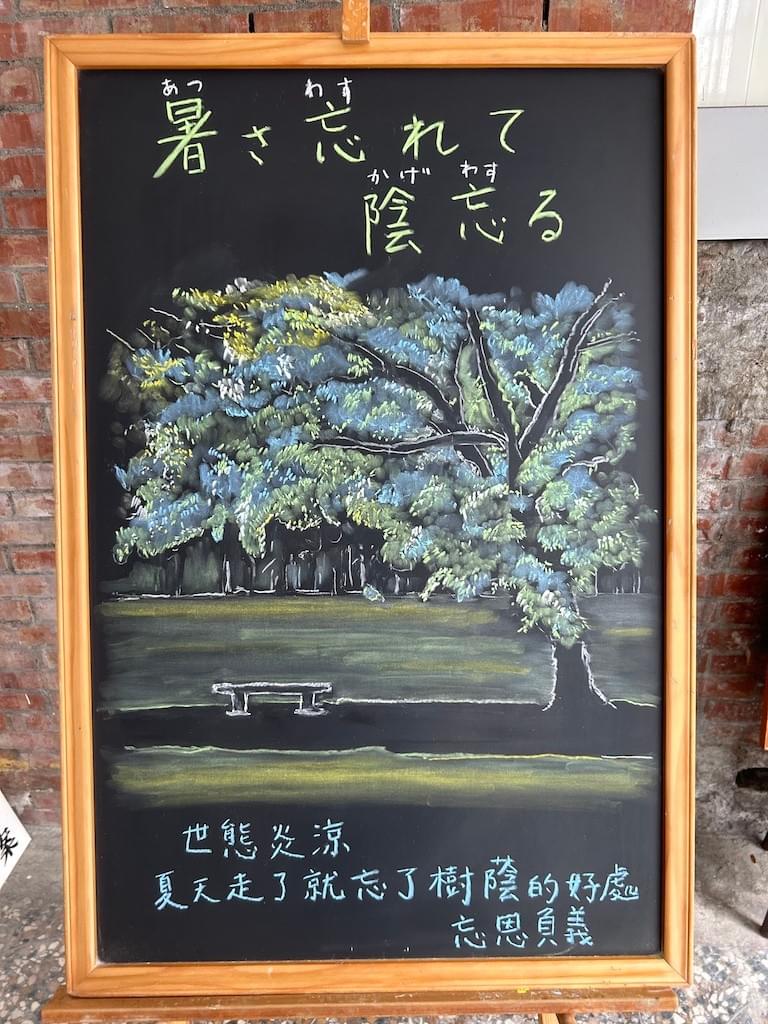 あつ わす
暑さ忘れて
かげ わす
陰忘る
世態炎涼
夏天走了就忘了樹蔭的好處
忘恩負義